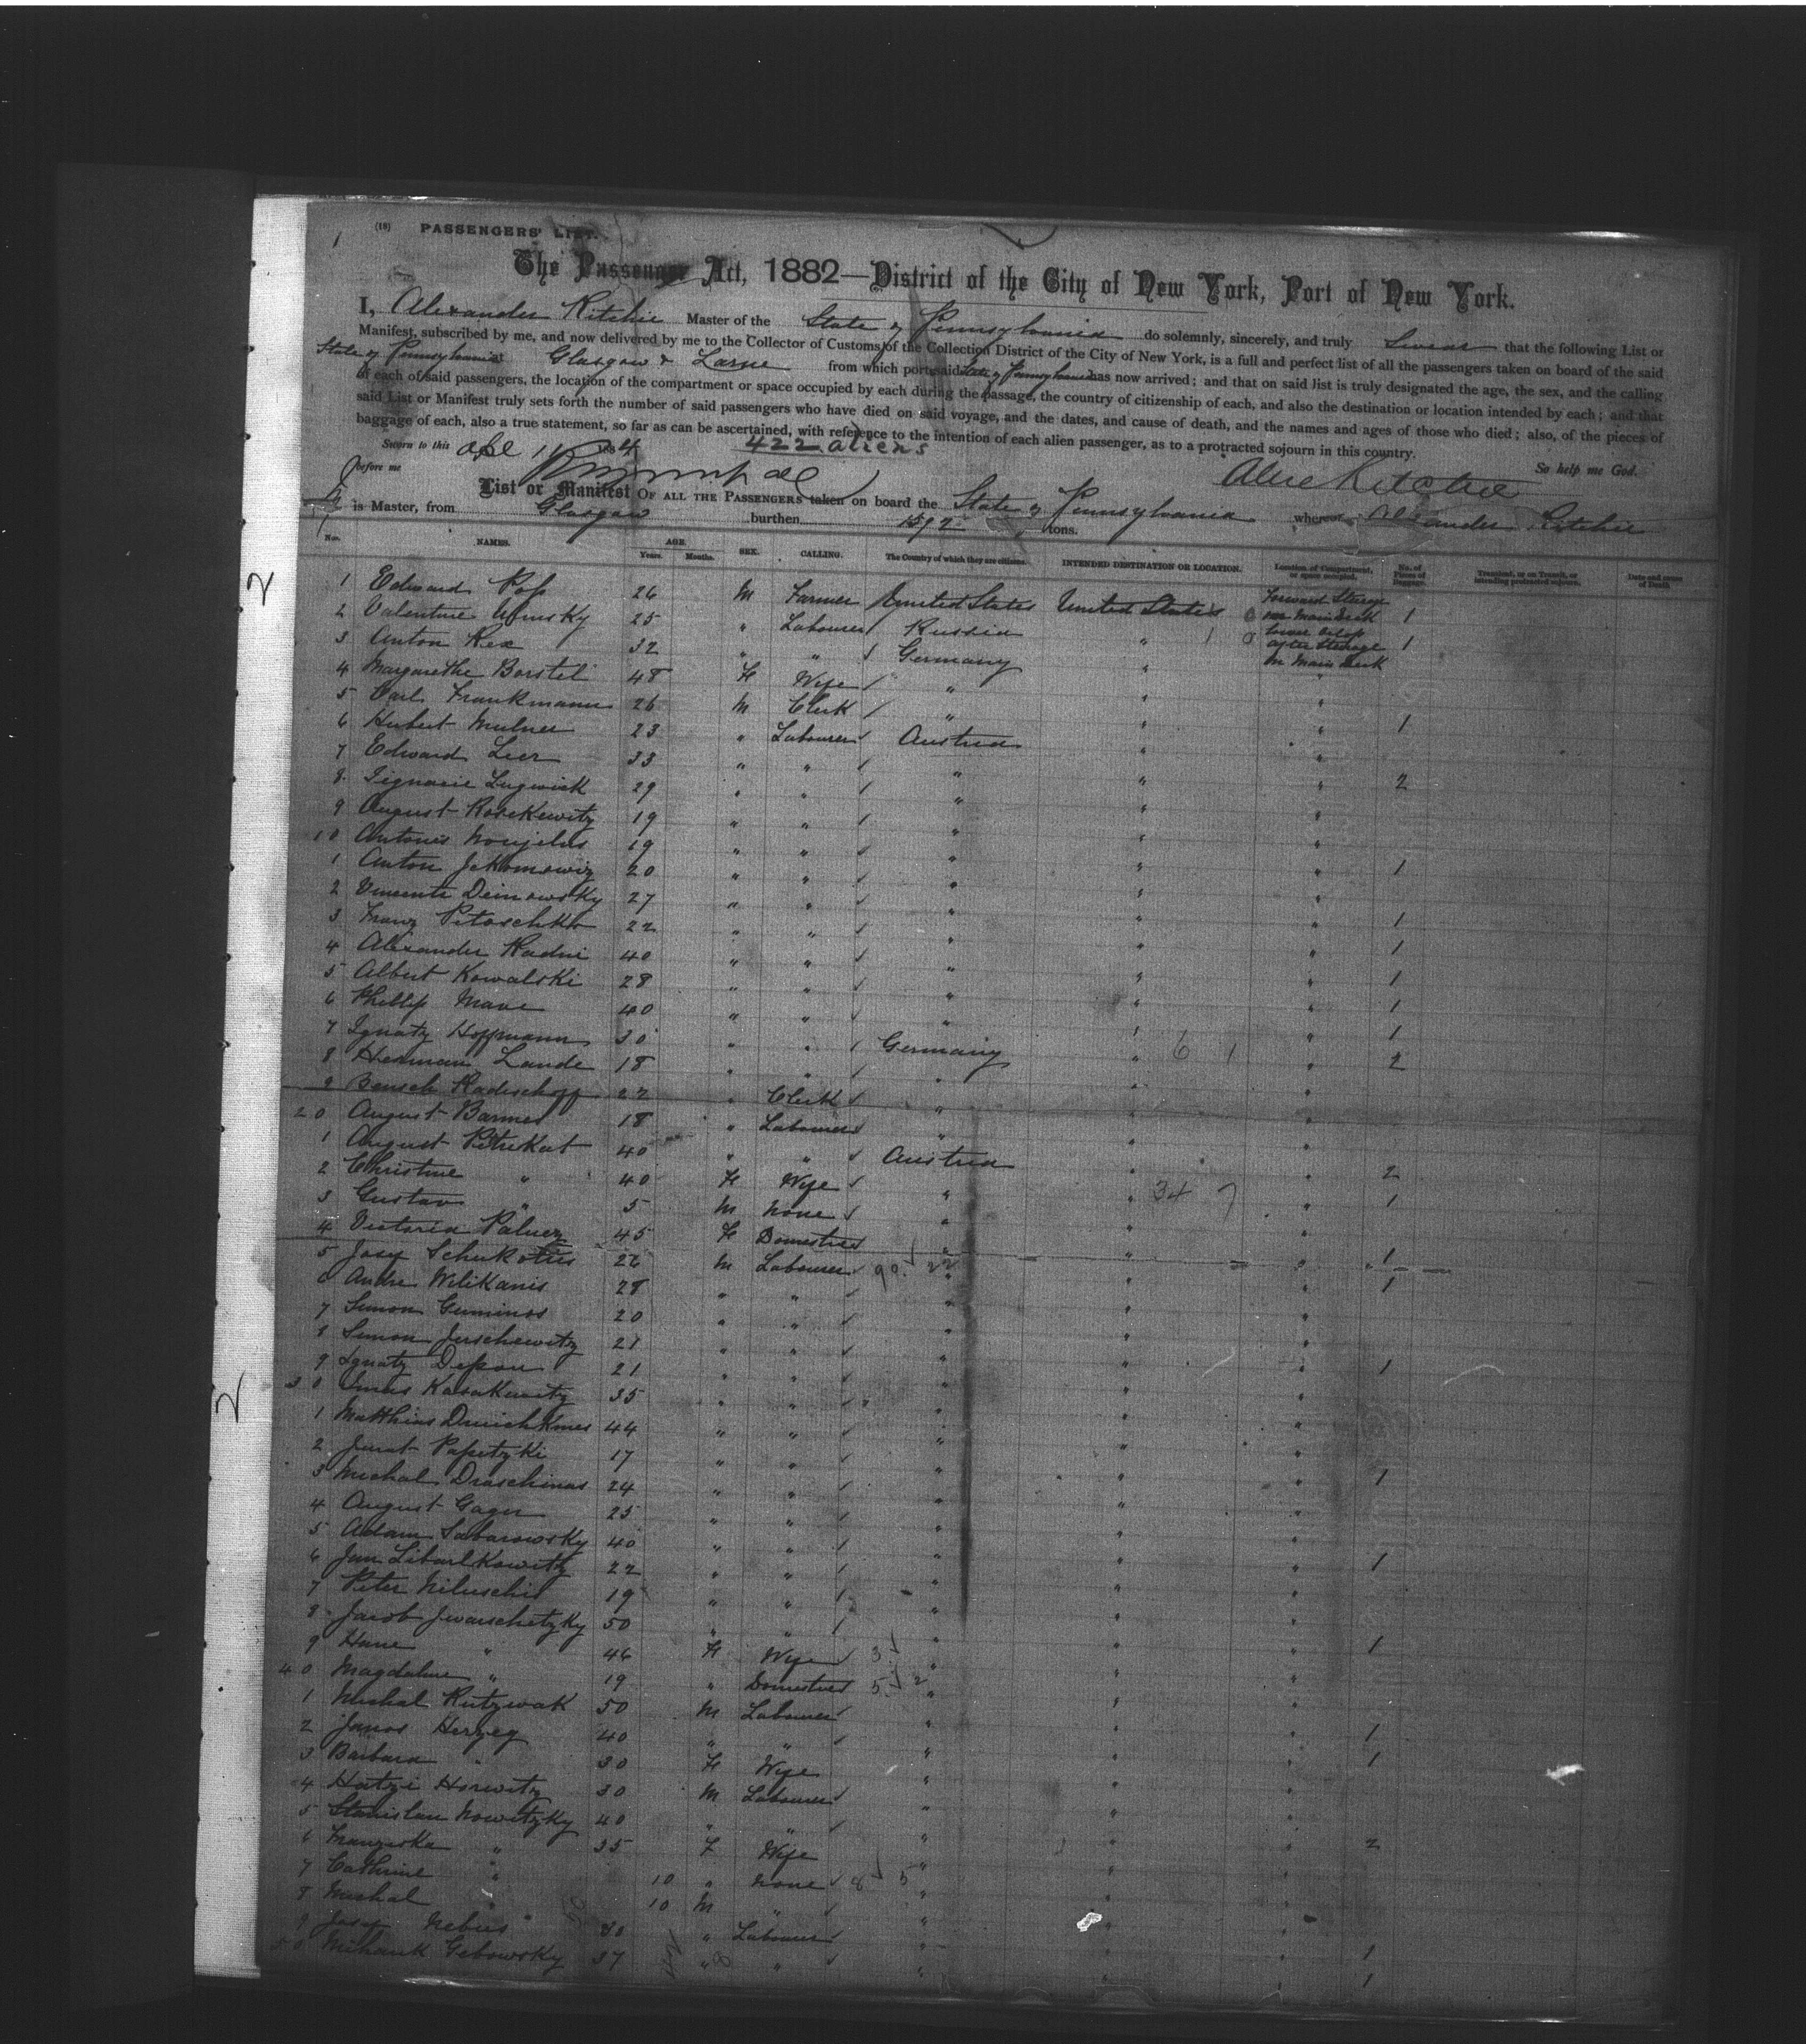 1
(19) PASSENGERS' LIST.
The Passenger Act, 1882—District of the City of New York, Port of New York.
I, Alexander Ritchie Master of the State of Pennsylvania do solemnly, sincerely, and truly Swear that the following List or
Manifest, subscribed by me, and now delivered by me to the Collector of Customs of the Collection District of the City of New York, is a full and perfect list of all the passengers taken on board of the said
State of Pennsylvania Glasgow & Larne from which port said State of Pennsylvania has now arrived; and that on said list is truly designated the age, the sex, and the calling
of each of said passengers, the location of the compartment or space occupied by each during the passage, the country of citizenship of each, and also the destination or location intended by each; and that
said List or Manifest truly sets forth the number of said passengers who have died on said voyage, and the dates, and cause of death, and the names and ages of those who died; also, of the pieces of
baggage of each, also a true statement, so far as can be ascertained, with reference to the intention of each alien passenger, as to a protracted sojourn in this country.
Sworn to this 422 aliens So help me God.
before me Alex Ritchie
List or Manifest OF ALL THE PASSENGERS taken on board the State of Pennsylvania whereof Alexander Ritchie
is Master, from Glasgow burthen tons.
No. NAMES. AGE. Years. Months. SEX. CALLING. The Country of which they are citizens. INTENDED DESTINATION OR LOCATION. Location of Compartment, or space occupied. No. of Pieces of Baggage. Transient, or on Transit, or intending protracted sojourn. Date and cause of Death
1 Edward Pop 26 M Farmer United States United States Forward Steerage
2 Valentine 25 " Labourer Russia " on Main Deck 1
3 Anton Rex 32 " " Germany " after Steerage on Main Deck 1
4 Margarethe Borstel 48 F Wife " " "
5 Carl Frankmann 26 M Clerk " " "
6 Hubert Mulner 23 " Labourer Austria " " 1
7 Edward Leer 33 " " " " "
8 Lugwick 29 " " " " " 2
9 August Rosekewitz 19 " " " " "
10 Antonis 19 " " " " "
1 Anton 20 " " " " " 1
2 Vincente Deinowsky 27 " " " " "
3 Franz Pitoschkk 22 " " " " " 1
4 Alexander Radni 40 " " " " " 1
5 Albert Kowalski 28 " " " " " 1
6 Phillip Mave 40 " " " " " 1
7 Ignatz Hoffmann 30 " " Germany " " 1
8 Herman Lande 18 " " " " " 2
9 Bensch Radischoff 22 " Clerk " " "
20 August Barmes 18 " Labourer " " "
1 August Petrikat 40 " " Austria " "
2 Christine " 40 F Wife " " " 2
3 Gustav " 5 M None " " " 1
4 Victoria 45 F Domestic " " "
5 Josef 26 M Labourer " " " 1
6 Andre Wilikanis 28 " " " " " 1
7 Simon Guminos 20 " " " " "
8 Simon Juschewitz 21 " " " " "
9 Ignatz Depon 21 " " " " " 1
30 Kasakewitz 35 " " " " "
1 Matthias 44 " " " " "
2 Papetzki 17 " " " " "
3 Michal Draschinas 24 " " " " " 1
4 August Gager 25 " " " " "
5 Adam Sabarowsky 40 " " " " "
6 Jan 22 " " " " " 1
7 Peter 19 " " " " "
8 Jacob Jwaschetzky 50 " " " " "
9 Hane " 46 F Wife " " " 1
40 Magdalene " 19 " Domestic " " "
1 Michal Rutzwak 50 M Labourer " " "
2 Janos Herzeg 40 " " " " " 1
3 Barbara " 30 F Wife " " " 1
4 Hatzi Horwitz 30 M Labourer " " "
5 Stanislau Nowitzky 40 " " " " "
6 Franziska " 35 F Wife " " " 2
7 Cathrine " 10 " None " " "
8 Michal " 10 M " " " "
9 Josef Nebus 30 " Labourer " " " 1
50 Gebowsky 37 " " " " " 1
2
2